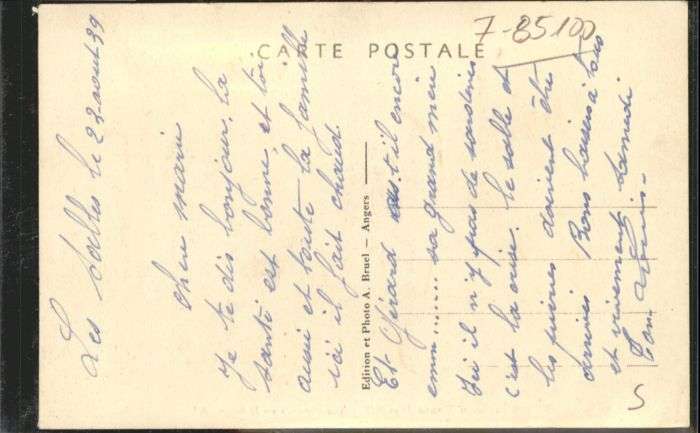 7-85100
CARTE POSTALE
Les Sables le 22 aout 39
Chere marie
Je te dis bonjour, la
santé est bonne, et toi
aussi et toute la famille
ici il fait chaud.
Edition et Photo A. Bruel — Angers
Et Gérard est-il encore
emm....... sa grand mère
Ici il n'y a pas de sardines
c'est la crise. le sable et
les doivent être
Bons baisers à tous
et vivement samedi
Ton
S